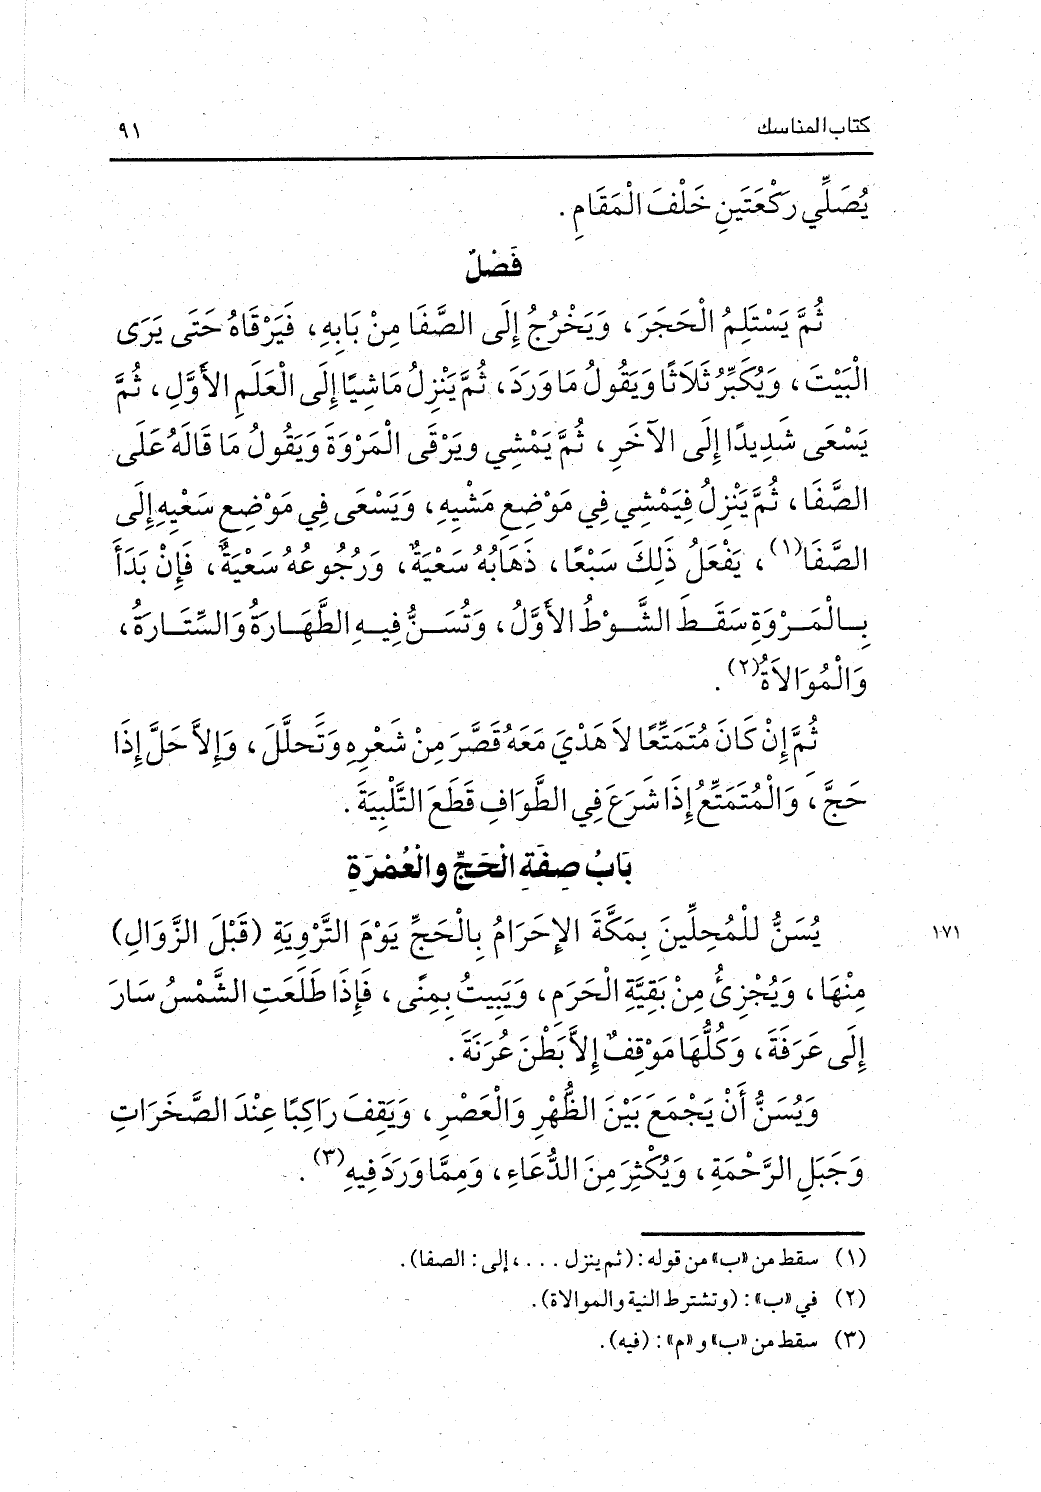 كتاب المناسك ٩١
يُصَلِّي رَكْعَتَينِ خَلْفَ الْمَقَامِ .
فَصْلٌ
ثُمَّ يَسْتَلِمُ الْحَجَرَ ، وَيَخْرُجُ إِلَى الصَّفَا مِنْ بَابِهِ ، فَيَرْقَاهُ حَتَى يَرَى
الْبَيْتَ ، وَيُكَبِّرُ ثَلَاثًا وَيَقُولُ مَا وَرَدَ ، ثُمَّ يَنْزِلُ مَاشِيًا إِلَى الْعَلَمِ الأَوَّلِ ، ثُمَّ
يَسْعَى شَدِيدًا إِلَى الآخَرِ ، ثُمَّ يَمْشِي ويَرْقَى الْمَرْوَةَ وَيَقُولُ مَا قَالَهُ عَلَى
الصَّفَا ، ثُمَّ يَنْزِلُ فِيَمْشِي فِي مَوْضِعِ مَشْيِهِ ، وَيَسْعَى فِي مَوْضِعِ سَعْيِهِ إِلَى
الصَّفَا(١) ، يَفْعَلُ ذَلِكَ سَبْعًا ، ذَهَابُهُ سَعْيَةٌ ، وَرُجُوعُهُ سَعْيَةٌ ، فَإِنْ بَدَأَ
بِالْمَرْوَةِ سَقَطَ الشَّوْطُ الأَوَّلُ ، وَتُسَنُّ فِيهِ الطَّهَارَةُ وَالسِّتَارَةُ ،
وَالْمُوَالاَةُ(٢) .
ثُمَّ إِنْ كَانَ مُتَمَتِّعًا لاَ هَدْيَ مَعَهُ قَصَّرَ مِنْ شَعْرِهِ وَتَحلَّلَ ، وَإِلاَّ حَلَّ إِذَا
حَجَّ ، وَالْمُتَمَتِّعُ إِذَا شَرَعَ فِي الطَّوَافِ قَطَعَ التَّلْبِيَةَ .
بَابُ صِفَةِ الْحَجِّ والْعُمْرَةِ
يُسَنُّ لِلْمُحِلِّينَ بِمَكَّةَ الإِحَرَامُ بِالْحَجِّ يَوْمَ التَّرْوِيَةِ (قَبْلَ الزَّوَالِ) ١٠٧١
مِنْهَا ، وَيُجْزِئُ مِنْ بَقِيَّةِ الْحَرَمِ ، وَيَبِيتُ بِمِنًى ، فَإِذَا طَلَعَتِ الشَّمْسُ سَارَ
إِلَى عَرَفَةَ ، وَكُلُّهَا مَوْقِفٌ إِلاَّ بَطْنَ عُرَنَةَ .
وَيُسَنُّ أَنْ يَجْمَعَ بَيْنَ الظُّهْرِ وَالْعَصْرِ ، وَيَقِفَ رَاكِبًا عِنْدَ الصَّخَرَاتِ
وَجَبَلِ الرَّحْمَةِ ، وَيُكْثِرَ مِنَ الدُّعَاءِ ، وَمِمَّا وَرَدَ فِيهِ(٣) .
(١) سقط من «ب» من قوله : (ثم ينزل . . . ، إلى : الصفا) .
(٢) في «ب» : (وتشترط النية والموالاة) .
(٣) سقط من «ب» و «م» : (فيه) .